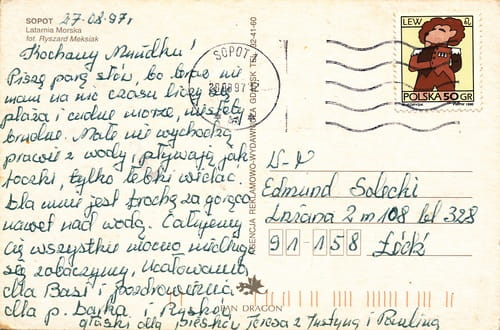 SOPOT 27.08.97r.
Latarnia Morska
fot. Ryszard Meksiak
Kochany Mundku!
Piszę parę słów, bo teraz nie
mam na nic czasu liczy się
plaża i cudne morze, niestety
brudne. Małe nie wychodzą
prawie z wody, pływają jak
foczki, tylko łebki widać.
Dla mnie jest trochę za gorąco
nawet nad wodą. Całujemy
Cię wszystkie mocno niedługo
się zobaczymy, Ucałowania
dla Basi i pozdrowienia
dla p. Bajka i
głaski dla Piesków Teresa z Justyną i Pauliną
AGENCJA REKLAMOWO-WYDAWNICZA GDAŃSK TEL. 02-41-60
JAN DRAGON
SOPOT
97
LEW
POLSKA 50 GR
Edmund Solecki
2 m 108 bl 328
91-158 Łódź